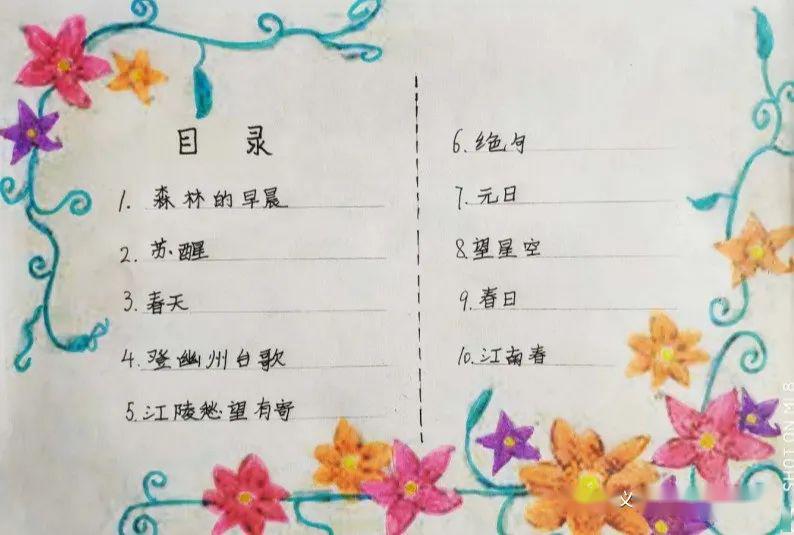 目 录
1. 森林的早晨
2. 苏醒
3. 春天
4. 登幽州台歌
5. 江陵愁望有寄
6. 绝句
7. 元日
8. 望星空
9. 春日
10. 江南春
义
SHOT ON MI 8